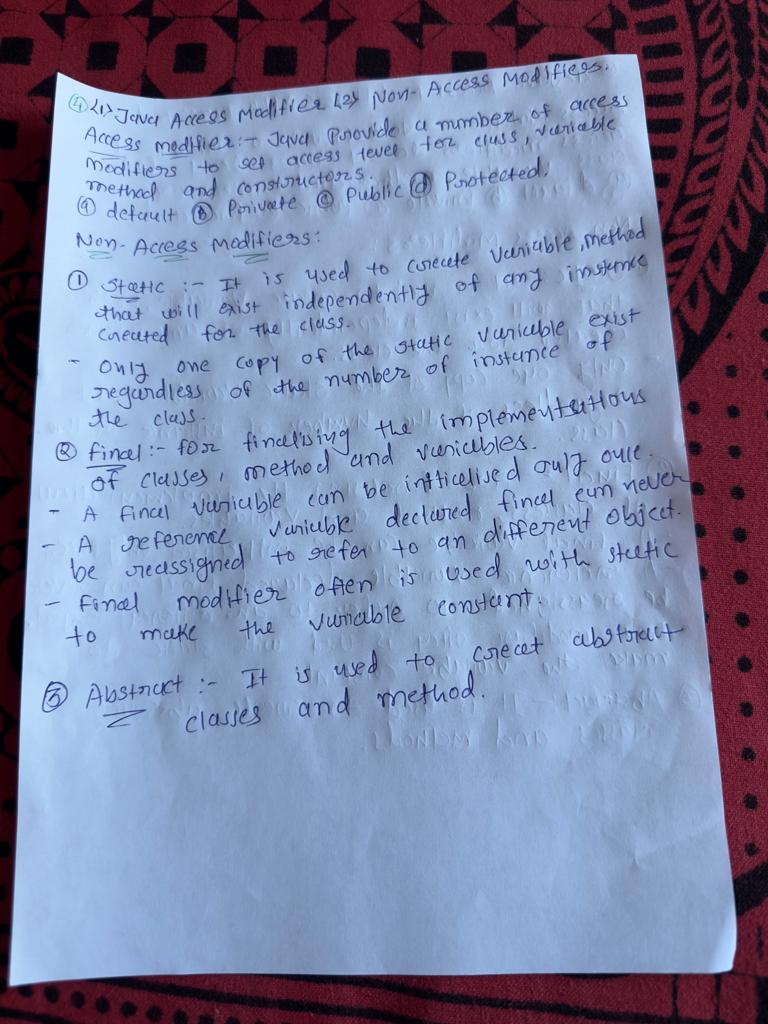 ④ <1> Java Access Modifier <2> Non-Access Modifiers.
Access modifier:- Java Provide a number of access
modifiers to set access level for class, variable
method and constructors.
ⓐ default ⓑ Private ⓒ Public ⓓ Protected.
Non-Access Modifiers:
① Static :- It is used to create variable, method
that will exist independently of any instance
created for the class.
- Only one copy of the static variable exist
regardless of the number of instance of
the class.
② Final :- for finalising the implementations
of classes, method and variables.
- A final variable can be initialised only once.
- A reference variable declared final can never
be reassigned to refer to an different object.
- Final modifier often is used with static
to make the variable constant.
③ Abstract :- It is used to creat abstract
classes and method.